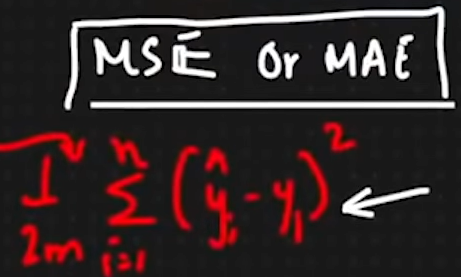 MSE or MAE
1/2m n∑i=1 (ŷi - yi)²